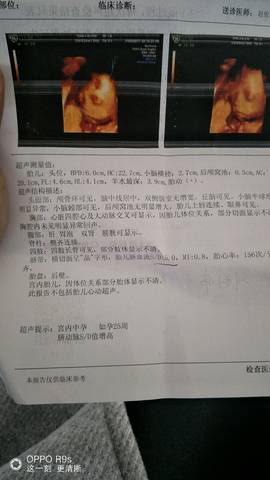 部位：　临床诊断：　送诊医师：
超声测量值：
胎儿：头位，BPD:6.0cm,HC:22.7cm,小脑横径：2.7cm,后颅窝池：0.5cm,AC:
20.1cm,FL:4.6cm,HL:4.1cm，羊水最深：3.9cm,胎动（+）.
超声结构描述：
头面部：颅骨环可见，脑中线居中，双侧脑室无增宽，丘脑可见，小脑半球形
明显异常，小脑蚓部可见，后颅窝池无明显增大，胎儿上唇连续，眼易可见。
胸部：心脏四腔心及大动脉交叉可显示，因胎儿体位关系，部分切面显示不
胸腔内未见明显异常回声。
腹部：肝 胃泡 双肾 膀胱可显示。
脊柱：整齐连续。
四肢：四肢长骨可见，部分肢体显示不清。
脐带：横切面呈"品"字形，胎儿脐血流S/D:5.0, MI:0.8, 胎心率：156次/
齐.
胎盘：后壁。
宫内胎儿，因体位关系部分胎体显示不清。
此报告不包括胎儿心动超声。
超声提示：宫内中孕 如孕25周
脐动脉S/D值增高
本报告仅供临床参考
检查医
OPPO R9s
这一刻 更清晰